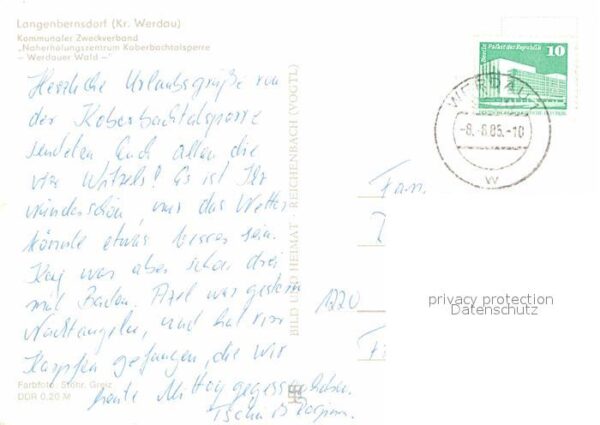 Langenbernsdorf (Kr. Werdau)
Kommunaler Zweckverband
„Naherholungszentrum Koberbachtalsperre
– Werdauer Wald –"
Herzliche Urlaubsgrüße von
der Koberbachtalsperre
senden Euch allen die
vier Witzels! Es ist hier
wunderschön, nur das Wetter
könnte etwas besser sein.
Kay war aber schon drei
mal Baden. Axel war gestern
Nachtangeln, und hat vier
Karpfen gefangen, die wir
heute Mittag gegessen haben.
Tschüß
Farbfoto: Stöhr, Greiz
DDR 0,20 M
BILD UND HEIMAT · REICHENBACH (VOGTL)
Berlin Palast der Republik
10
WERDAU 1
-8.-8.85.-10
W
Fam.
1220
privacy protection
Datenschutz